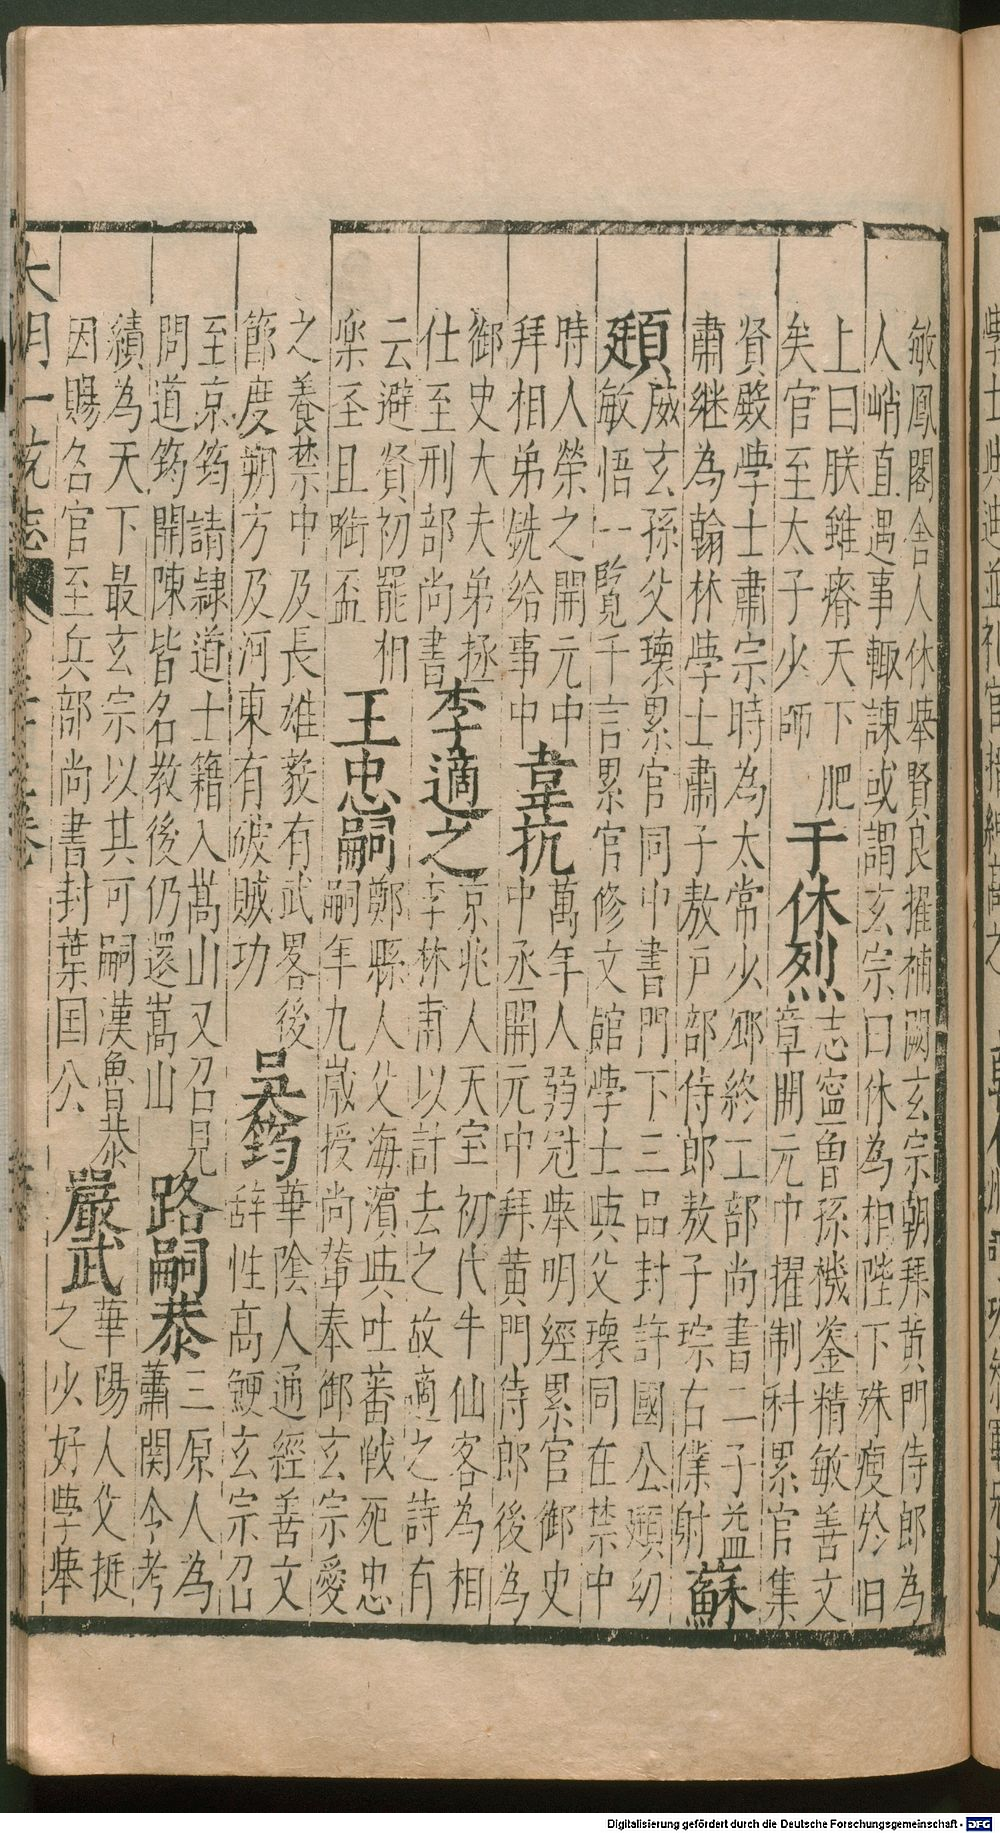 敏鳳閣舍人休舉賢良擢補闕玄宗朝拜黃門侍郎為
人峭直遇事輙諫或謂玄宗曰休為相陛下殊瘦於旧
上曰朕雖瘠天下肥
矣官至太子少師
于休烈
志寧曾孫機鑒精敏善文
章開元中擢制科累官集
賢殿學士肅宗時為太常少卿終工部尚書二子益
肅継為翰林學士肅子敖戶部侍郎敖子琮右僕射
蘇
頲
威玄孫父瓌累官同中書門下三品封許國公頲幼
敏悟一覧千言累官修文館學士與父瓌同在禁中
時人榮之開元中
拜相弟銑給事中
韋抗
萬年人弱冠舉明經累官御史
中丞開元中拜黃門侍郎後為
御史大夫弟拯
仕至刑部尚書
李適之
京兆人天宝初代牛仙客為相
李林甫以計去之故適之詩有
云避賢初罷相
樂圣且啣盃
王忠嗣
鄭縣人父海濱與吐蕃戰死忠
嗣年九歲授尚輦奉御玄宗愛
之養禁中及長雄毅有武畧後
節度朔方及河東有破賊功
吳筠
華陰人通經善文
辞性高鯁玄宗召
至京筠請隷道士籍入嵩山又召見
問道筠開陳皆名教後仍還嵩山
路嗣恭
三原人為
蕭関令考
績為天下最玄宗以其可嗣漢魯恭
因賜名官至兵部尚書封葉国公
嚴武
華陽人父挺
之少好學舉
大明一統志
Digitalisierung gefördert durch die Deutsche Forschungsgemeinschaft - DFG